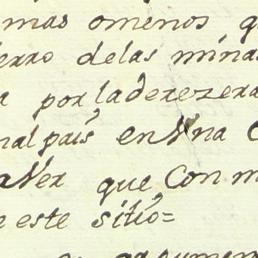 mas omenos q
erro delas minas
a porladerezera
nal pais en Vna C
aVer que Con m
e este sitio=
argumen